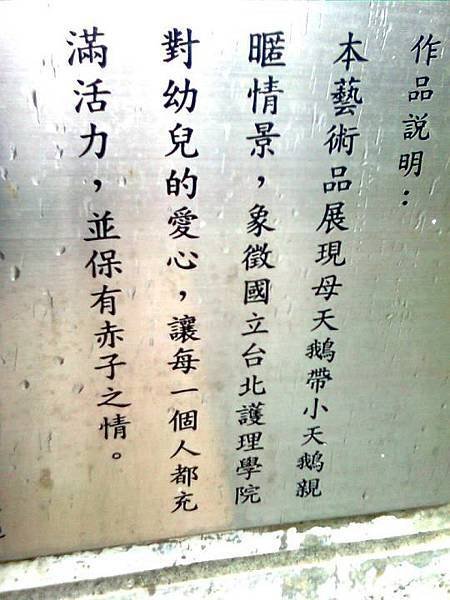 作品說明：
本藝術品展現母天鵝帶小天鵝親
暱情景，象徵國立台北護理學院
對幼兒的愛心，讓每一個人都充
滿活力，並保有赤子之情。